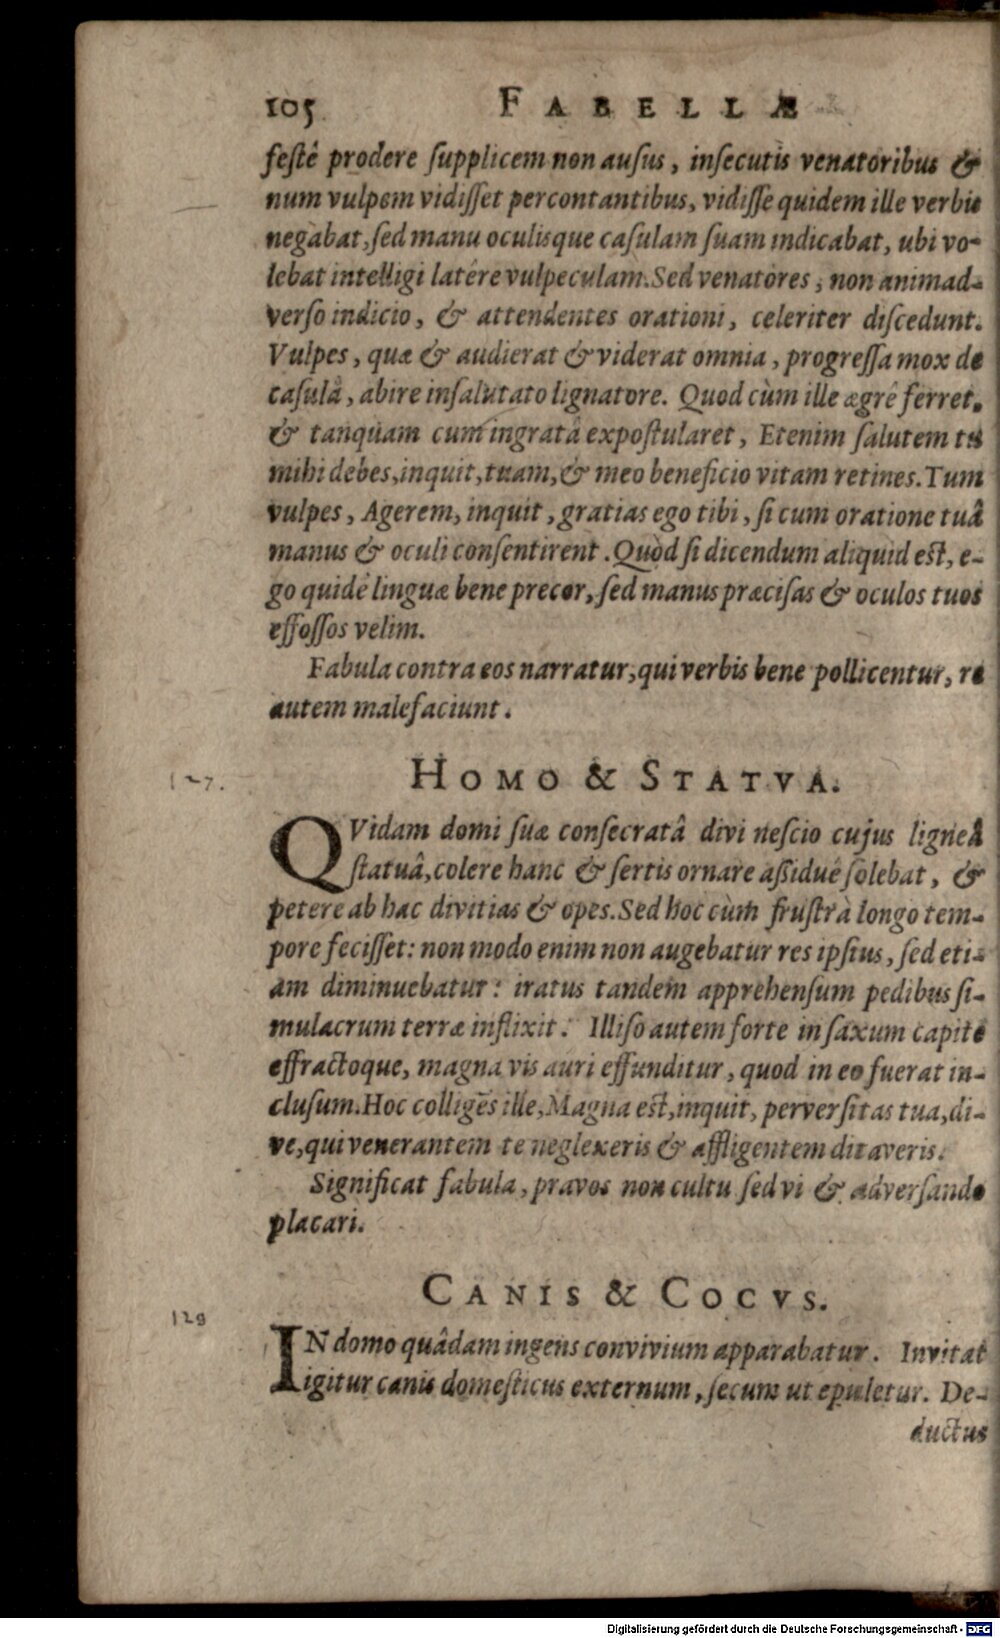 105 FABELLÆ
festê prodere supplicem non ausus, insecutis venatoribus &
num vulpem vidisset percontantibus, vidisse quidem ille verbis
negabat, sed manu oculisque casulam suam indicabat, ubi vo-
lebat intelligi latêre vulpeculam. Sed venatores, non animad-
verso indicio, & attendentes orationi, celeriter discedunt.
Vulpes, quæ & audierat & viderat omnia, progressa mox de
casulâ, abire insalutato lignatore. Quod cùm ille ægrê ferret,
& tanquam cum ingratâ expostularet, Etenim salutem tu
mihi debes, inquit, tuam, & meo beneficio vitam retines. Tum
vulpes, Agerem, inquit, gratias ego tibi, si cum oratione tuâ
manus & oculi consentirent. Quòd si dicendum aliquid est, e-
go quidē linguæ bene precor, sed manus præcisas & oculos tuos
effossos velim.
Fabula contra eos narratur, qui verbis bene pollicentur, re
autem malefaciunt.
127.
HOMO & STATVA.
QVidam domi suæ consecratâ divi nescio cujus ligneâ
statuâ, colere hanc & sertis ornare assiduê solebat, &
petere ab hac divitias & opes. Sed hoc cùm frustrà longo tem-
pore fecisset: non modo enim non augebatur res ipsius, sed eti-
am diminuebatur: iratus tandem apprehensum pedibus si-
mulacrum terræ inflixit. Illiso autem forte in saxum capite
effractoque, magna vis auri effunditur, quod in eo fuerat in-
clusum. Hoc colligēs ille, Magna est, inquit, perversitas tua, di-
ve, qui venerantem te neglexeris & affligentem ditaveris.
Significat fabula, pravos non cultu sed vi & adversando
placari.
129
CANIS & COCVS.
IN domo quâdam ingens convivium apparabatur. Invitat
igitur canis domesticus externum, secum ut epuletur. De-
ductus
Digitalisierung gefördert durch die Deutsche Forschungsgemeinschaft - DFG